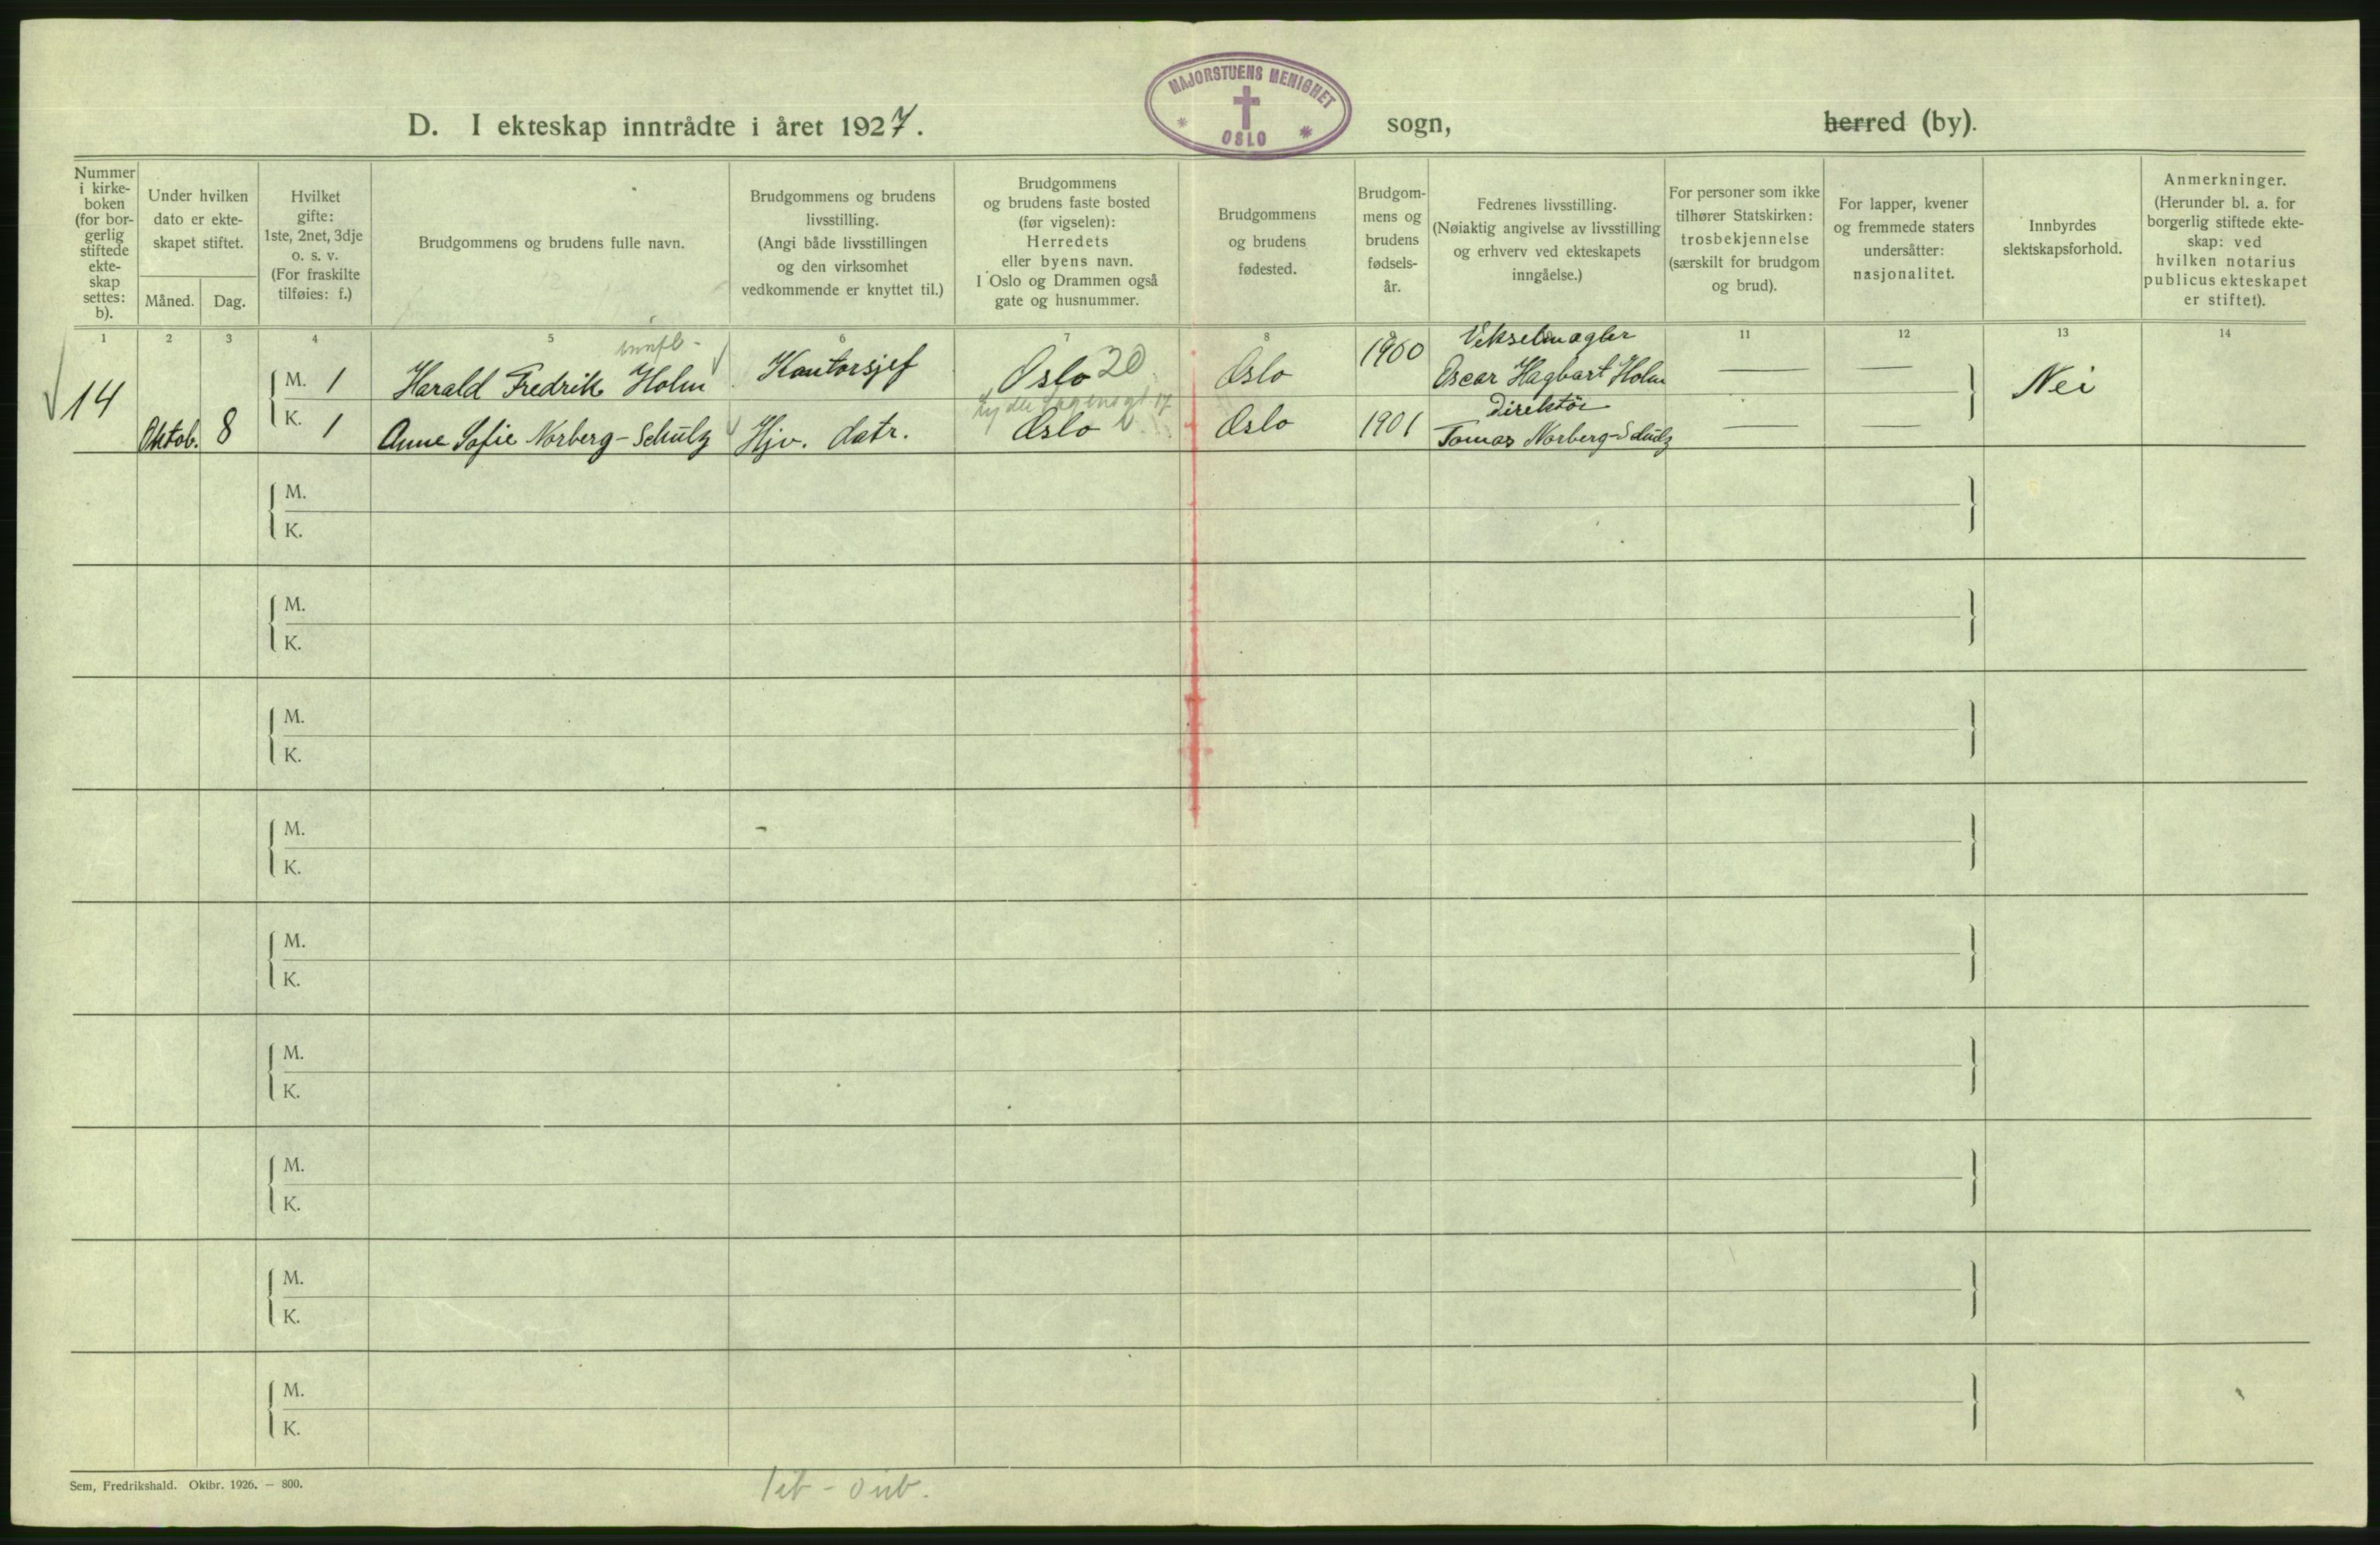 MAJORSTUENS MENIGHET
OSLO
D. I ekteskap inntrådte i året 1927.
sogn,
herred (by).
Nummer
i kirke-
boken
(for bor-
gerlig
stiftede
ekte-
skap
settes:
b).
Under hvilken
dato er ekte-
skapet stiftet.
Måned.
Dag.
Hvilket
gifte:
1ste, 2net, 3dje
o. s. v.
(For fraskilte
tilføies: f.)
Brudgommens og brudens fulle navn.
Brudgommens og brudens
livsstilling.
(Angi både livsstillingen
og den virksomhet
vedkommende er knyttet til.)
Brudgommens
og brudens faste bosted
(før vigselen):
Herredets
eller byens navn.
I Oslo og Drammen også
gate og husnummer.
Brudgommens
og brudens
fødested.
Brudgom-
mens og
brudens
fødsels-
år.
Fedrenes livsstilling.
(Nøiaktig angivelse av livsstilling
og erhverv ved ekteskapets
inngåelse.)
For personer som ikke
tilhører Statskirken:
trosbekjennelse
(særskilt for brudgom
og brud).
For lapper, kvener
og fremmede staters
undersåtter:
nasjonalitet.
Innbyrdes
slektskapsforhold.
Anmerkninger.
(Herunder bl. a. for
borgerlig stiftede ekte-
skap: ved
hvilken notarius
publicus ekteskapet
er stiftet).
1 2 3 4 5 6 7 8 11 12 13 14
14
Oktob. 8
M. 1 Harald Fredrik Holm Kontorsjef Oslo 20 Oslo 1900
Vekselmægler
Oscar Hagbart Holm — —
Nei
K. 1 Anne Sofie Norberg-Schulz Hjv. datr. Oslo Oslo 1901
Direktör
Tomas Norberg-Schulz — —
M.
K.
M.
K.
M.
K.
M.
K.
M.
K.
M.
K.
M.
K.
M.
K.
M.
K.
Sem, Fredrikshald. Oktbr. 1926. — 800.